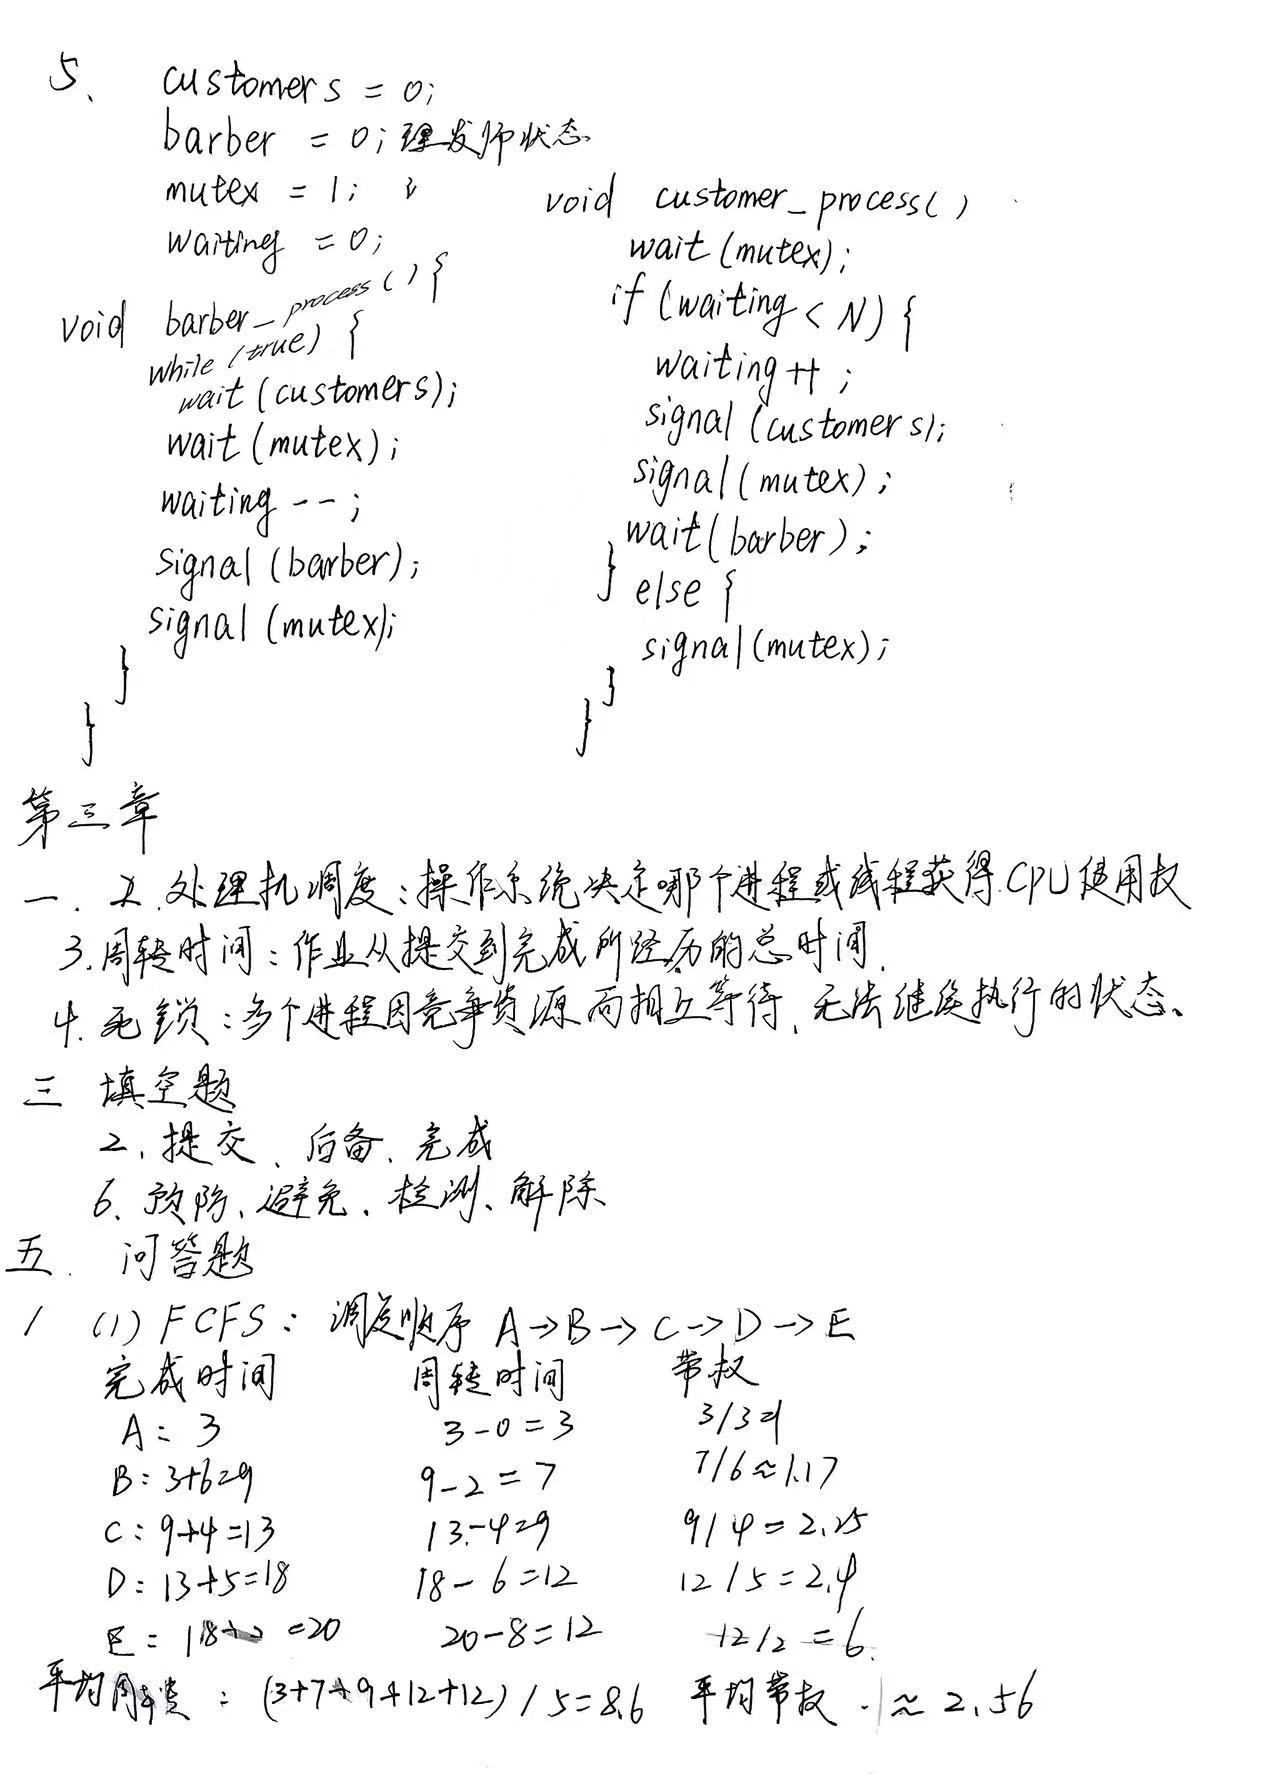 5、 customers = 0;
barber = 0; 理发师状态
mutex = 1;
waiting = 0;
void barber_process() {
while (true) {
wait (customers);
wait (mutex);
waiting --;
signal (barber);
signal (mutex);
}
}
void customer_process()
wait (mutex);
if (waiting < N) {
waiting ++;
signal (customers);
signal (mutex);
wait (barber);
} else {
signal (mutex);
}
}
第三章
一. 2. 处理机调度: 操作系统决定哪个进程或线程获得CPU使用权
3. 周转时间: 作业从提交到完成所经历的总时间.
4. 死锁: 多个进程因竞争资源而相互等待、无法继续执行的状态、
三 填空题
2. 提交、后备、完成
6. 预防、避免、检测、解除
五. 问答题
1 (1) FCFS: 调度顺序 A→B→C→D→E
完成时间 周转时间 带权
A: 3 3-0=3 3/3=1
B: 3+6=9 9-2=7 7/6≈1.17
C: 9+4=13 13-4=9 9/4=2.25
D: 13+5=18 18-6=12 12/5=2.4
E: 18+2=20 20-8=12 12/2=6
平均周转: (3+7+9+12+12)/5=8.6 平均带权 ≈2.56